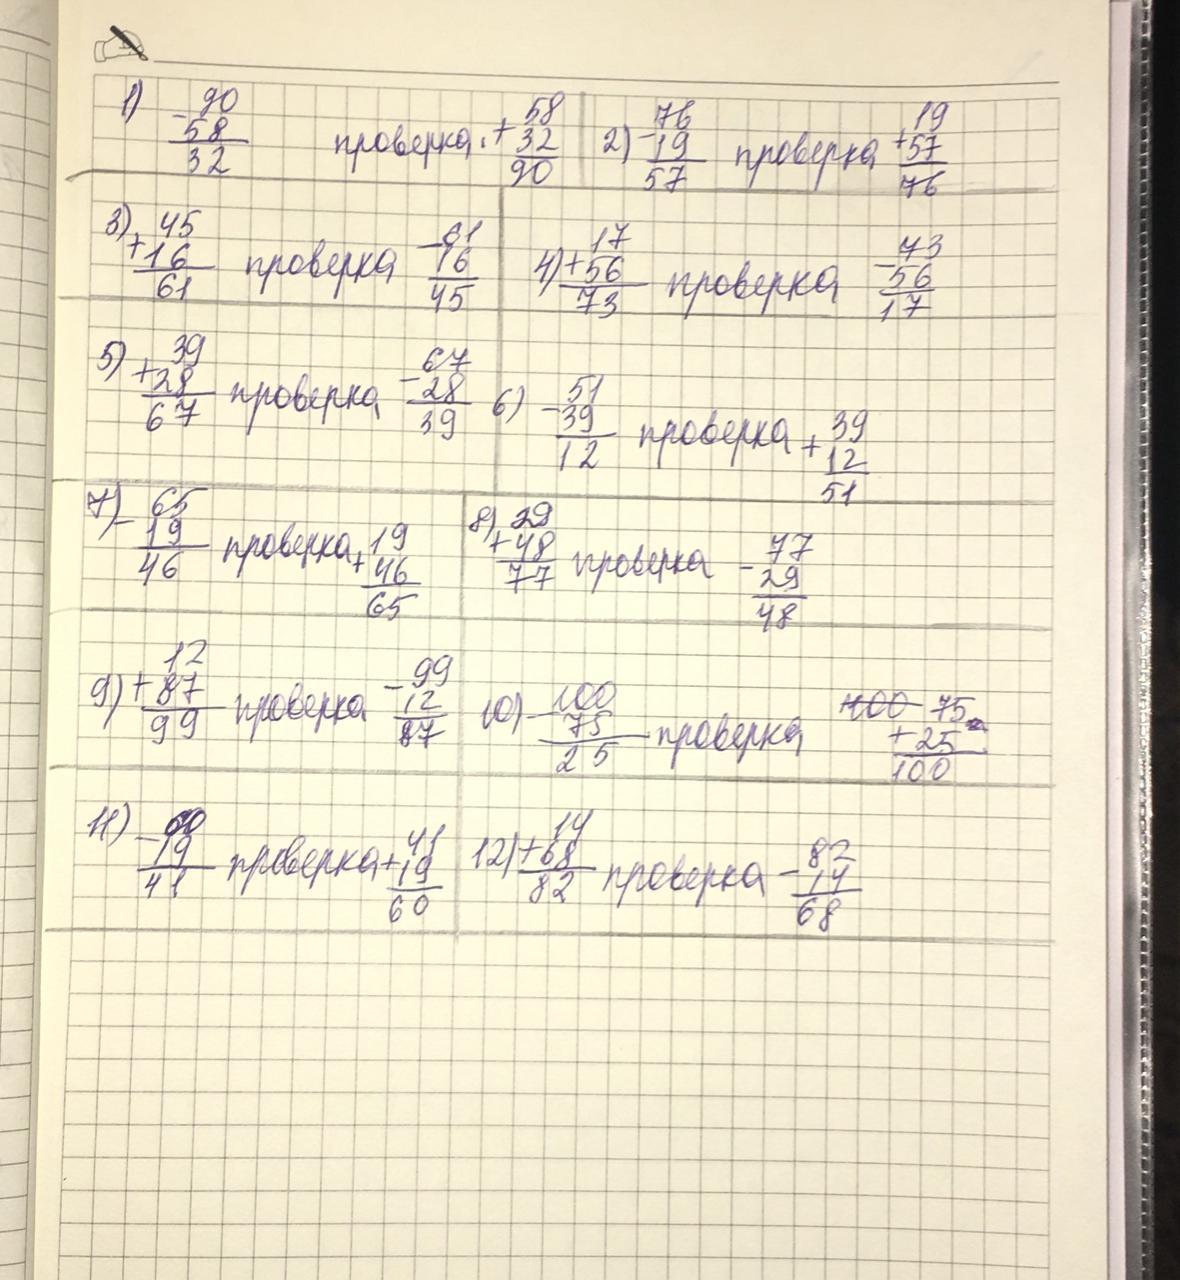 1) 90 58
- 58 проверка. + 32 2) 76 19
32 90 - 19 проверка + 57
57 76
3) 45 61 17 73
+ 16 проверка - 16 4) + 56 проверка - 56
61 45 73 17
5) 39 67 51
+ 28 проверка - 28 6) - 39 проверка + 39
67 39 12 12
51
7) 65 8) 29
- 19 проверка + 19 + 48 проверка - 77
46 46 77 29
65 48
9) 12 99 10) 100 100 75
+ 87 проверка - 12 - 75 проверка + 25
99 87 25 100
11) 60 41 12) 14 82
- 19 проверка + 19 + 68 проверка - 14
41 60 82 68